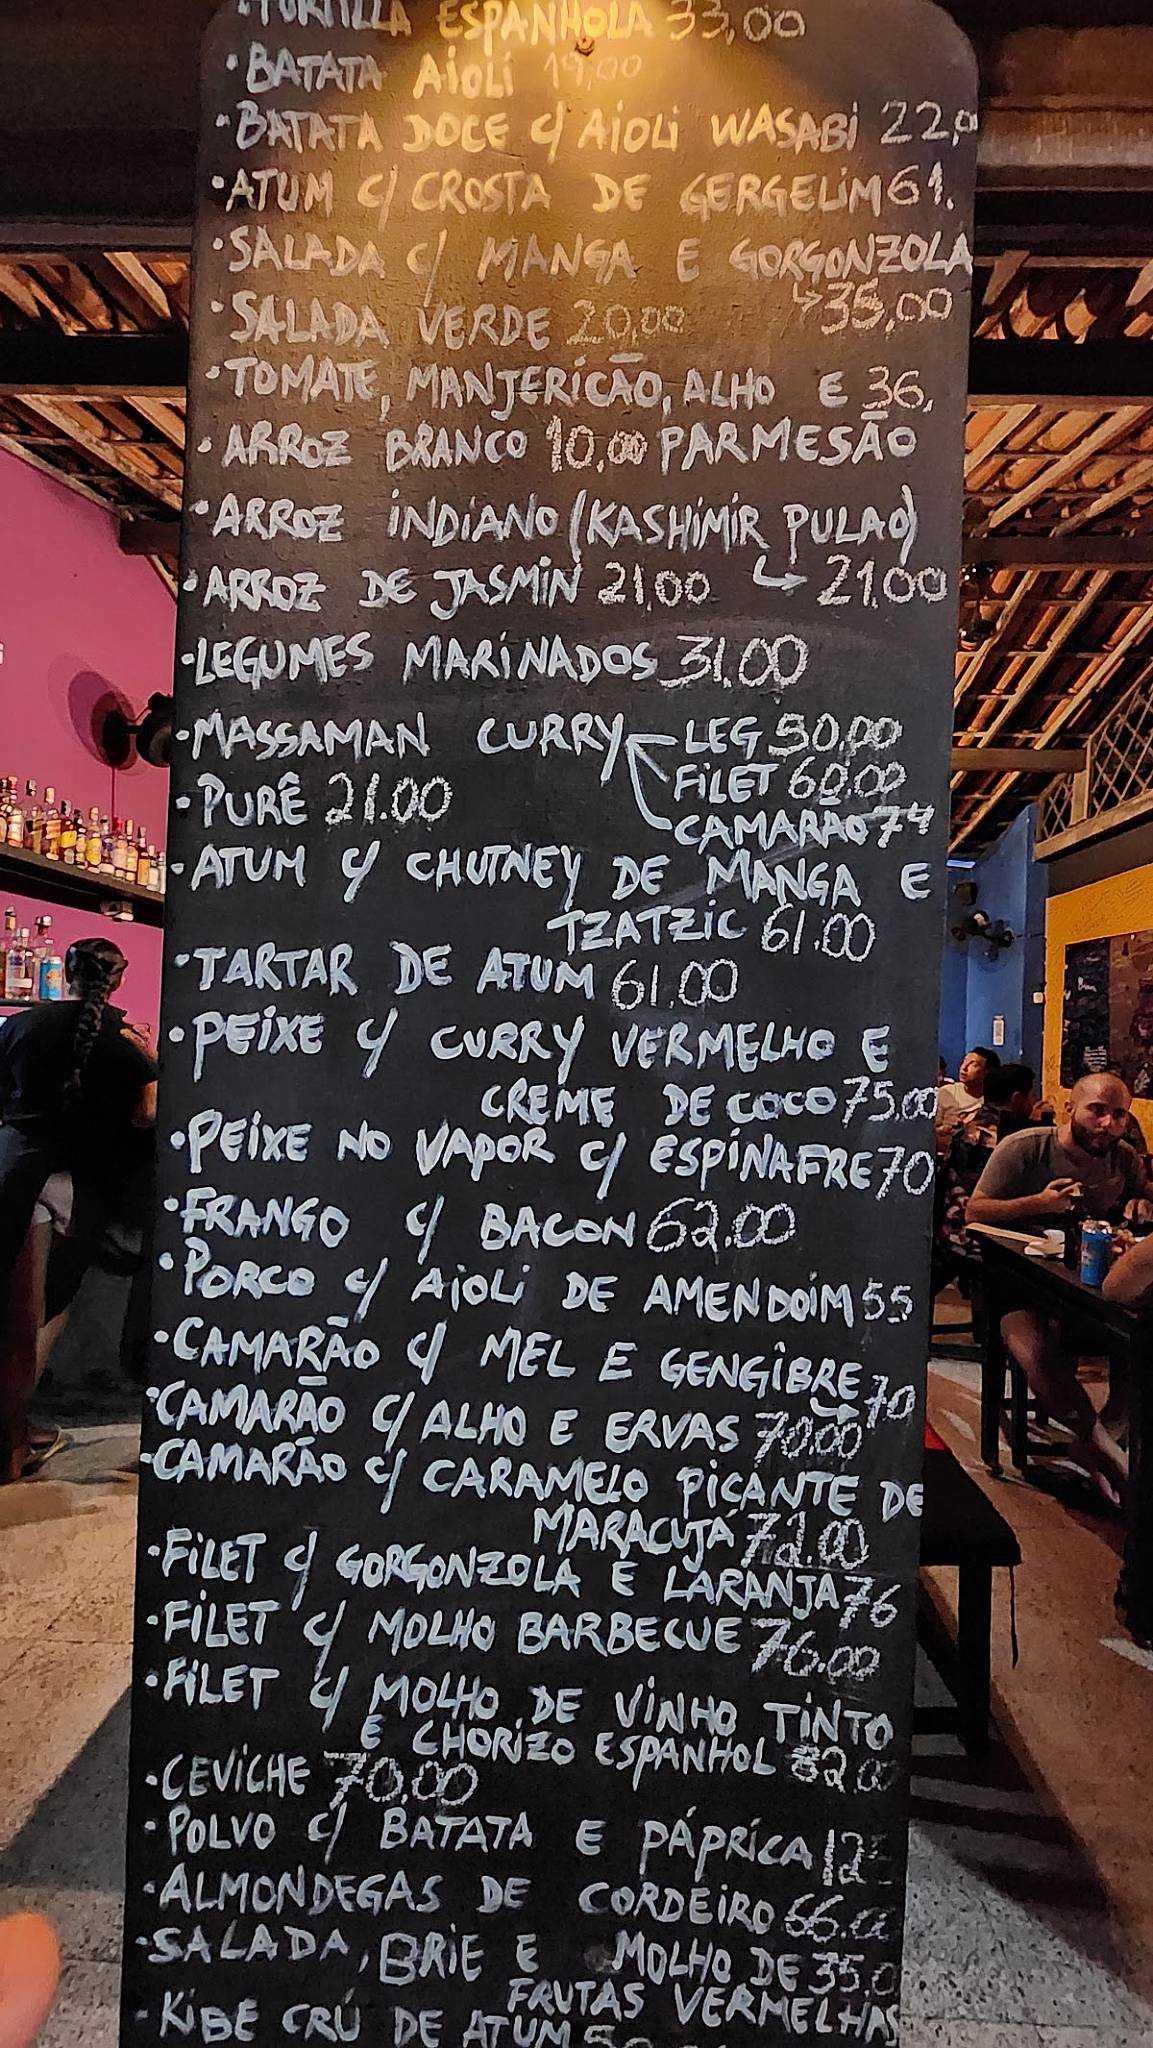 TORTILLA ESPANHOLA 33,00
•BATATA AIOLI 19,00
•BATATA DOCE C/ AIOLI WASABI 22,0
•ATUM C/ CROSTA DE GERGELIM 61.
•SALADA C/ MANGA E GORGONZOLA
↳35,00
•SALADA VERDE 20,00
•TOMATE, MANJERICÃO, ALHO E 36,
PARMESÃO
•ARROZ BRANCO 10,00
•ARROZ INDIANO (KASHIMIR PULAO)
↳ 21.00
•ARROZ DE JASMIN 21.00
•LEGUMES MARINADOS 31.00
•MASSAMAN CURRY LEG 50,00
FILET 60.00
CAMARÃO 74
•PURÊ 21.00
•ATUM C/ CHUTNEY DE MANGA E
TZATZIC 61.00
•TARTAR DE ATUM 61.00
•PEIXE C/ CURRY VERMELHO E
CREME DE COCO 75.00
•PEIXE NO VAPOR C/ ESPINAFRE 70
•FRANGO C/ BACON 62.00
•PORCO C/ AIOLI DE AMENDOIM 55
•CAMARÃO C/ MEL E GENGIBRE 70
•CAMARÃO C/ ALHO E ERVAS 70.00
•CAMARÃO C/ CARAMELO PICANTE DE
MARACUJÁ 72.00
•FILET C/ GORGONZOLA E LARANJA 76
•FILET C/ MOLHO BARBECUE 76.00
•FILET C/ MOLHO DE VINHO TINTO
E CHORIZO ESPANHOL 82.00
•CEVICHE 70.00
•POLVO C/ BATATA E PÁPRICA
•ALMONDEGAS DE CORDEIRO 66.00
•SALADA, BRIE E MOLHO DE 35.0
FRUTAS VERMELHAS
•KIBE CRÚ DE ATUM